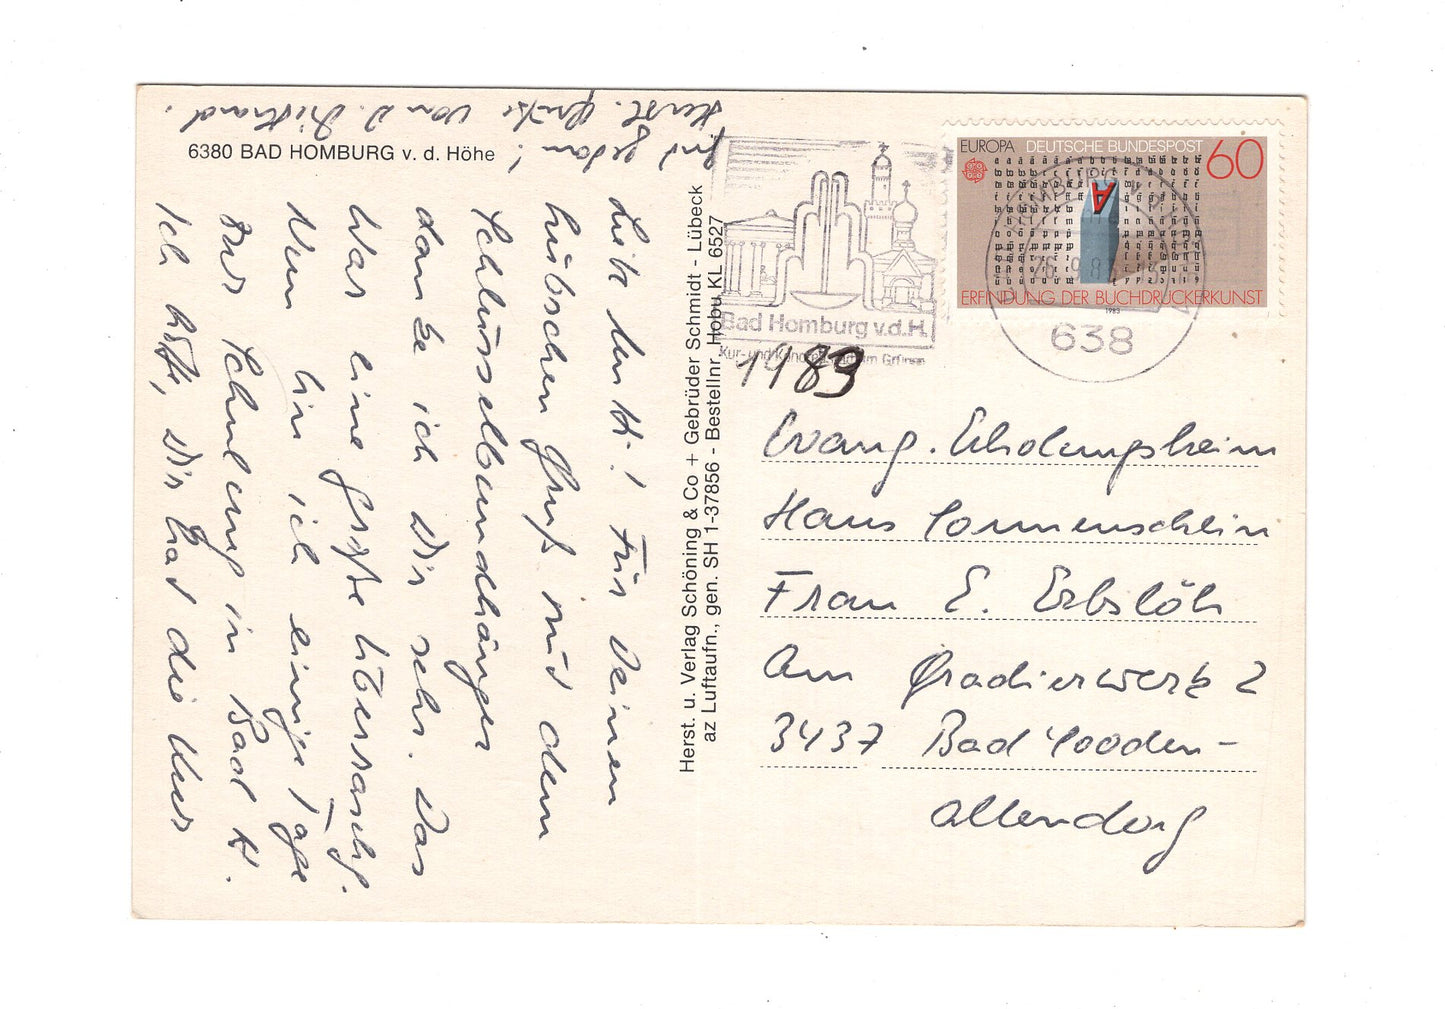 6380 BAD HOMBURG v. d. Höhe
Liebe Ursti! Für Deinen
hübschen Gruß und den
Schlüsselbundhänger
danke ich Dir sehr. Das
war eine große Überraschg.
Nun bin ich einige Tage
zur Schulung in Bad H.
Ich hoffe, Dir hat die Kur
gut getan!
Herzl. Grüße von D.
Herst. u. Verlag Schöning & Co + Gebrüder Schmidt - Lübeck
az Luftaufn., gen. SH 1-37856 - Bestellnr. Hobu KL 6527
Bad Homburg v.d.H.
Kur- und Kongreßstadt im Grünen
1983
EUROPA DEUTSCHE BUNDESPOST 60
A
ERFINDUNG DER BUCHDRUCKERKUNST
1983
638
Evang. Erholungsheim
Haus Sonnenschein
Frau E. Erbslöh
Am Gradierwerk 2
3437 Bad Sooden-
Allendorf